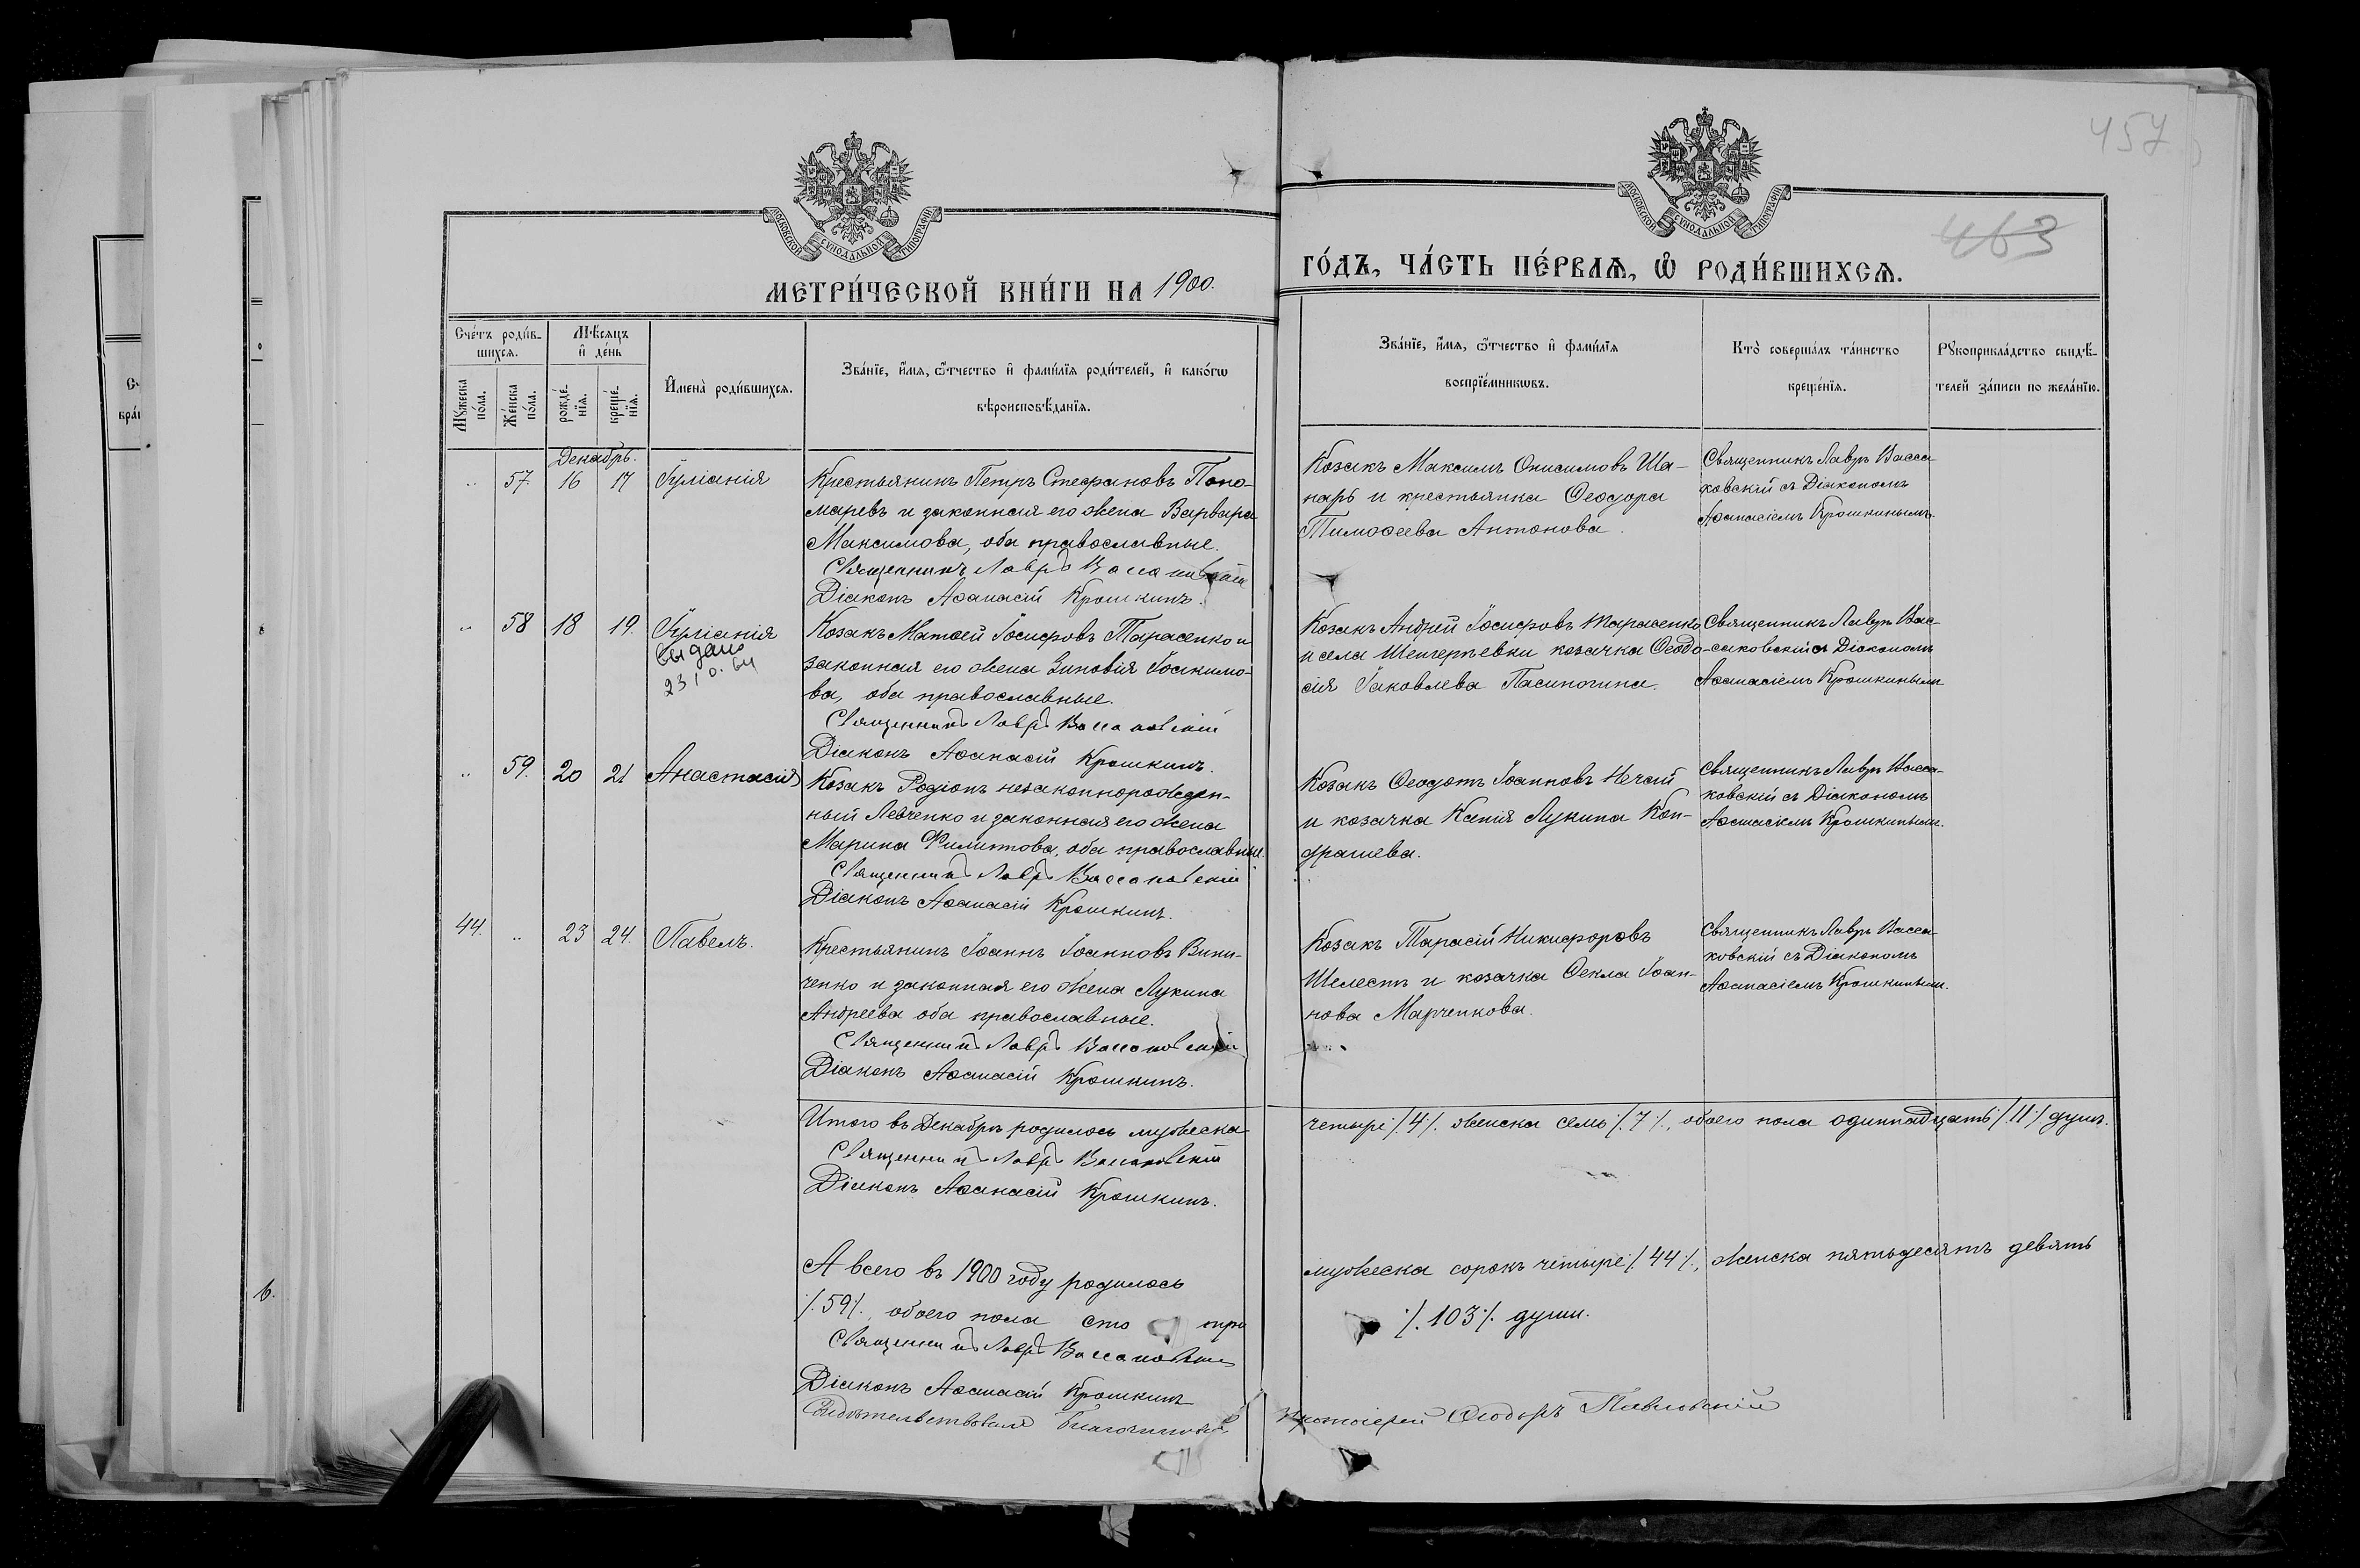 457
463
МОСКОВСКОЙ СѴНОДАЛЬНОЙ ТИПОГРАФІИ
МОСКОВСКОЙ СѴНОДАЛЬНОЙ ТИПОГРАФІИ
МЕТРИ́ЧЕСКОЙ КНИ́ГИ НА 1900.
ГО́ДЪ, ЧА́СТЬ ПЕ́РВАѦ, Ѿ РОДИ́ВШИХСѦ.
Сче́тъ роди́в-
шихсѧ.
Мѣ́сѧцъ
и҆ де́нь
Мꙋ́жеска
по́ла.
Же́нска
по́ла.
рожде́-
нїѧ.
креще́-
нїѧ.
И҆мена̀ роди́вшихсѧ.
Зва́нїе, и҆́мѧ, ѻ҆́тчество и҆ фами́лїѧ роди́телей, и҆ како́гѡ
вѣроисповѣ́данїѧ.
Зва́нїе, и҆́мѧ, ѻ҆́тчество и҆ фами́лїѧ
воспрїе́мникѡвъ.
Кто̀ соверша́лъ та́инство
креще́нїѧ.
Рꙋкоприкла́дство свидѣ́-
телей за́писи по жела́нїю.
Декабрь.
.. 57. 16 17 Іуліанія
Крестьянинъ Петръ Стефановъ Поно-
маревъ и законная его жена Варвара
Максимова, оба православные.
Священникъ Лавръ Вассаковскій
Діаконъ Аѳанасій Крошкинъ.
Козакъ Максимъ Онисимовъ Ша-
нарь и крестьянка Ѳеодора
Тимоѳеева Антонова.
Священникъ Лавръ Васса-
ковскій съ Діакономъ
Аѳанасіемъ Крошкинымъ.
.. 58 18 19. Іуліанія
выдано
Козакъ Матѳей Іосифовъ Тарасенко и
законная его жена Зиновія Іоакимо-
ва, оба православные.
Священникъ Лавръ Вассаковскій
Діаконъ Аѳанасій Крошкинъ.
Козакъ Андрей Іосифовъ Тарасенко
и села козачка Ѳеодо-
сія Іаковлева
Священникъ Лавръ Вас-
саковскій съ Діакономъ
Аѳанасіемъ Крошкинымъ
.. 59. 20 21 Анастасія
Козакъ Родіонъ незаконнорожден-
ный Левченко и законная его жена
Марина Филиппова, оба православные.
Священникъ Лавръ Вассаковскій
Діаконъ Аѳанасій Крошкинъ.
Козакъ Ѳеодотъ Іоанновъ Нечай
и козачка Ксенія Лукина Кон-
драшева.
Священникъ Лавръ Васса-
ковскій съ Діакономъ
Аѳанасіемъ Крошкинымъ.
44. .. 23 24. Павелъ.
Крестьянинъ Іоаннъ Іоанновъ Вини-
ченко и законная его жена Лукина
Андреева оба православные.
Священникъ Лавръ Вассаковскій
Діаконъ Аѳанасій Крошкинъ.
Козакъ Тарасій Никифоровъ
Шелестъ и козачка Ѳекла Іоан-
нова Марченкова.
Священникъ Лавръ Васса-
ковскій съ Діакономъ
Аѳанасіемъ Крошкинымъ.
Итого въ Декабрѣ родилось мужеска
четыре /.4/. женска семь /.7/., обоего пола одиннадцать /.11/. душъ.
Священникъ Лавръ Вассаковскій
Діаконъ Аѳанасій Крошкинъ.
А всего въ 1900 году родилось
мужеска сорокъ четыре /.44/., женска пятьдесятъ девять
/.59/., обоего пола сто три
/.103/. души.
Священникъ Лавръ Вассаковскій
Діаконъ Аѳанасій Крошкинъ
Свидѣтельствовалъ Благочинный,
Протоіерей Ѳеодоръ Павловскій